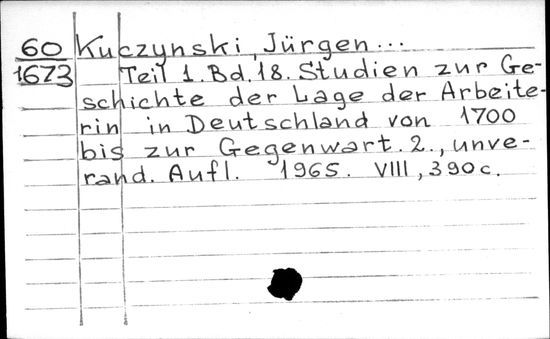 60 Kuczynski, Jürgen...
1673 Teil 1. Bd. 18. Studien zur Ge-
schichte der Lage der Arbeite-
rin in Deutschland von 1700
bis zur Gegenwart. 2., unve-
rand. Aufl. 1965. VIII, 390 c.